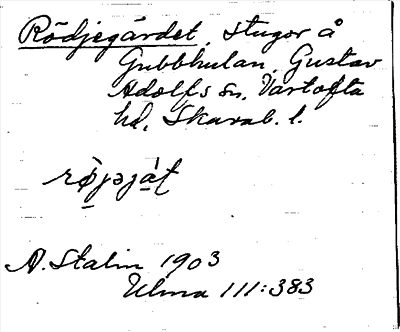 Rödjegärdet, stugor å
Gubbhulan, Gustav
Adolfs sn. Vartofta
hd, Skarab. l.
A. Stalin 1903
Ulma 111:383